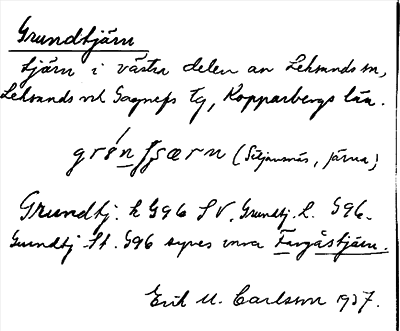 Grundtjärn
tjärn i västra delen av Leksands sn,
Leksands och Gagnefs tg, Kopparbergs län.
(Siljansnäs, Järna)
Grundtj. k G96 SV, Grundtj. L. G96.
Grundtj St. G96 synes vara Fargåstjärn.
Erik M. Carlsson 1937.